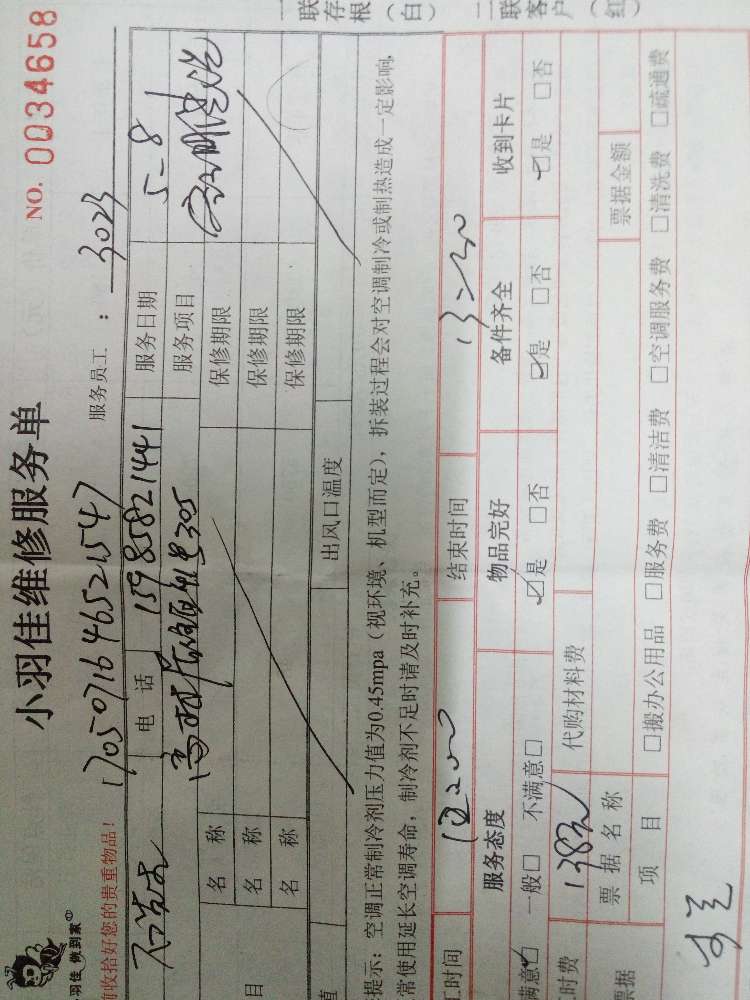 小羽佳维修服务单
NO. 0034658
小羽佳 做到家
前收拾好您的贵重物品!
17050716465221547
服务员工 : 3023
电话 15985821441 服务日期 5-8
服务项目
名称 保修期限
名称 保修期限
目 名称 保修期限
值 出风口温度
提示：空调正常制冷剂压力值为0.45mpa（视环境、机型而定），拆装过程会对空调制冷或制热造成一定影响，
常使用延长空调寿命，制冷剂不足时请及时补充。
工时间 结束时间
服务态度 物品完好 备件齐全 收到卡片
满意☑ 一般□ 不满意□ ☑是 □否 ☑是 □否 ☑是 □否
时费 138元 代购材料费
票据 票据名称 票据金额
项目 □搬办公用品 □服务费 □清洁费 □空调服务费 □清洗费 □疏通费
一联存根（白）
二联客户（红）